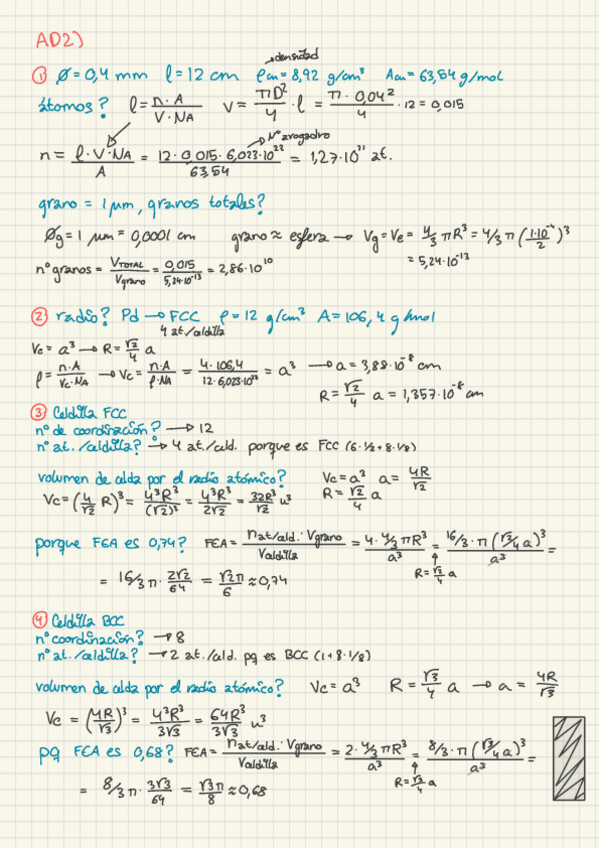 AD2)
→densidad
① Ø = 0,4 mm l = 12 cm ρcu = 8,92 g/cm³ Acu = 63,54 g/mol
átomos? ρ = n·A / V·NA V = πD²/4 · l = π·0,04²/4 · 12 = 0,015
→Nº avogadro
n = ρ·V·NA / A = 12·0,015·6,023·10²³ / 63,54 = 1,27·10²¹ at.
grano = 1 μm, granos totales?
Øg = 1 μm = 0,0001 cm grano ≈ esfera → Vg = Ve = 4/3 πR³ = 4/3 π (1·10⁻⁴/2)³
= 5,24·10⁻¹³
nº granos = VTOTAL / Vgrano = 0,015 / 5,24·10⁻¹³ = 2,86·10¹⁰
② radio? Pd → FCC ρ = 12 g/cm³ A = 106,4 g/mol
4 at./celdilla
Vc = a³ → R = √2/4 a
ρ = n·A / Vc·NA → Vc = n·A / ρ·NA = 4·106,4 / 12·6,023·10²³ = a³ → a = 3,88·10⁻⁸ cm
R = √2/4 a = 1,357·10⁻⁸ cm
③ Celdilla FCC
nº de coordinación? → 12
nº at./celdilla? → 4 at./celd. porque es FCC (6·1/2+8·1/8)
volumen de celda por el radio atómico? Vc = a³ a = 4R/√2
Vc = (4/√2 R)³ = 4³R³/(√2)³ = 4³R³/2√2 = 32R³/√2 u³ R = √2/4 a
porque FEA es 0,74? FEA = nat/celd.·Vgrano / Vceldilla = 4·4/3πR³ / a³ = 16/3·π(√2/4 a)³ / a³ =
R = √2/4 a
= 16/3 π · 2√2/64 = √2π/6 ≈ 0,74
④ Celdilla BCC
nº coordinación? → 8
nº at./celdilla? → 2 at./celd. pq es BCC (1+8·1/8)
volumen de celda por el radio atómico? Vc = a³ R = √3/4 a → a = 4R/√3
Vc = (4R/√3)³ = 4³R³/3√3 = 64R³/3√3 u³
pq FEA es 0,68? FEA = nat/celd.·Vgrano / Vceldilla = 2·4/3πR³ / a³ = 8/3·π(√3/4 a)³ / a³ =
R = √3/4 a
= 8/3 π · 3√3/64 = √3π/8 ≈ 0,68